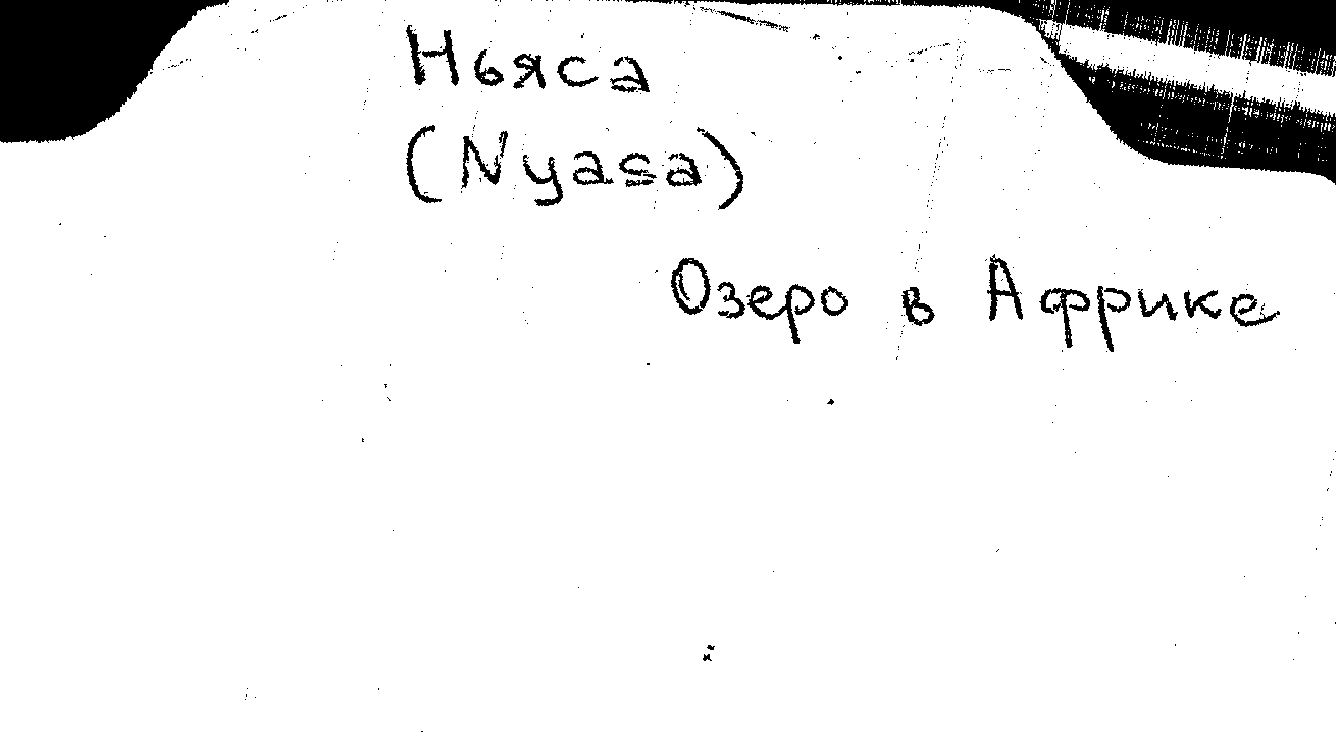 Ньяса
(Nyasa)
Озеро в Африке